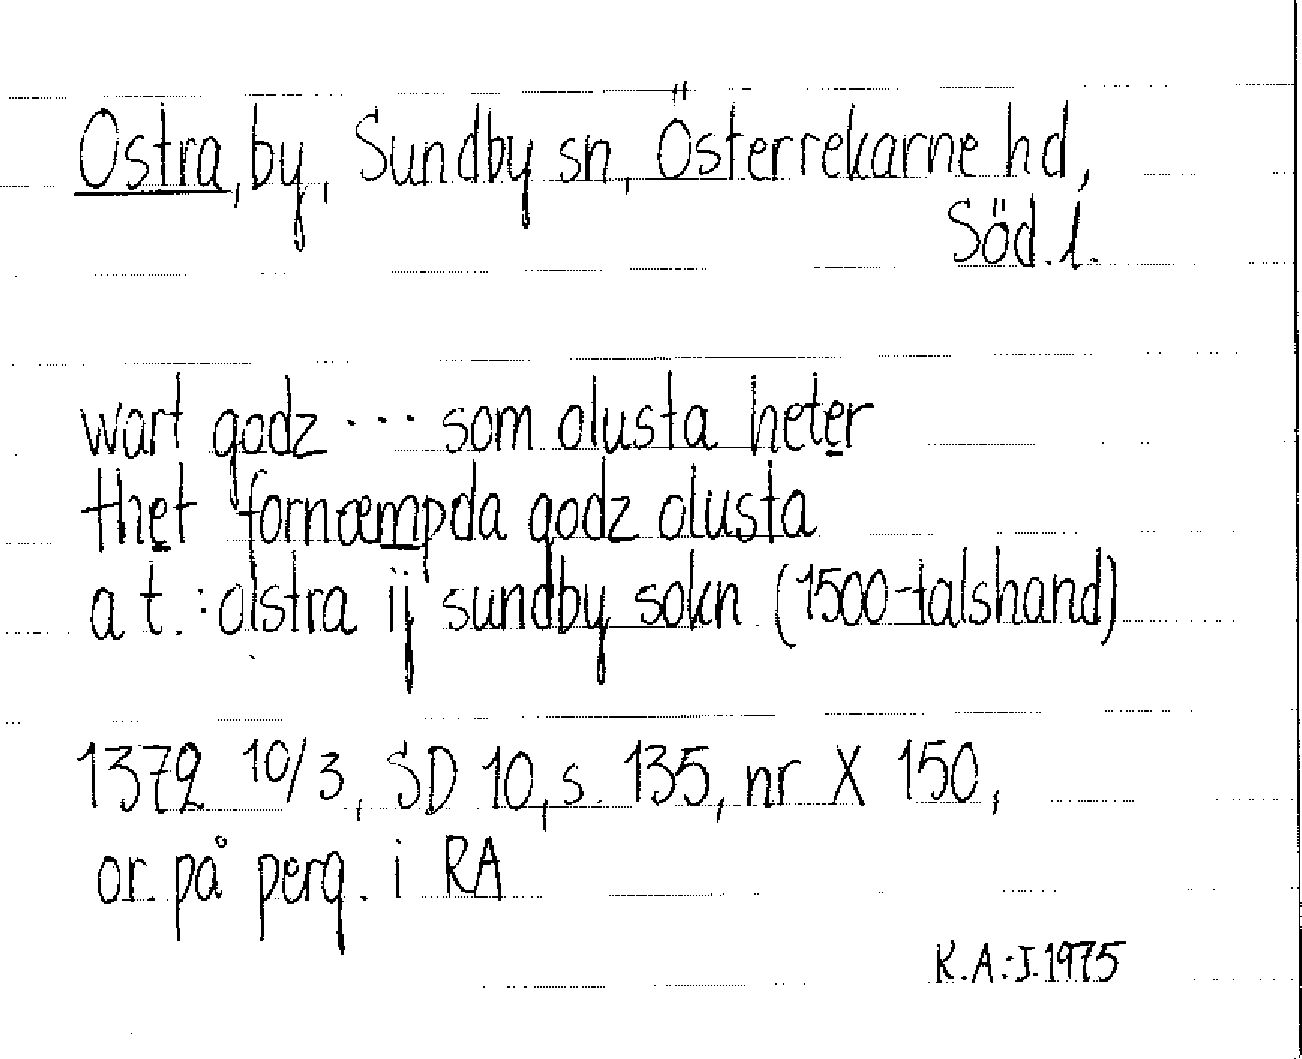 Ostra, by, Sundby sn, Österrekarne hd,
Söd. l.
wart godz ... som olusta heter
thet fornæmpda godz olusta
a t.: olstra ij sundby sokn (1500-talshand)
1372 10/3, SD 10, s. 135, nr X 150,
or. på perg. i RA
K.A:I.1975